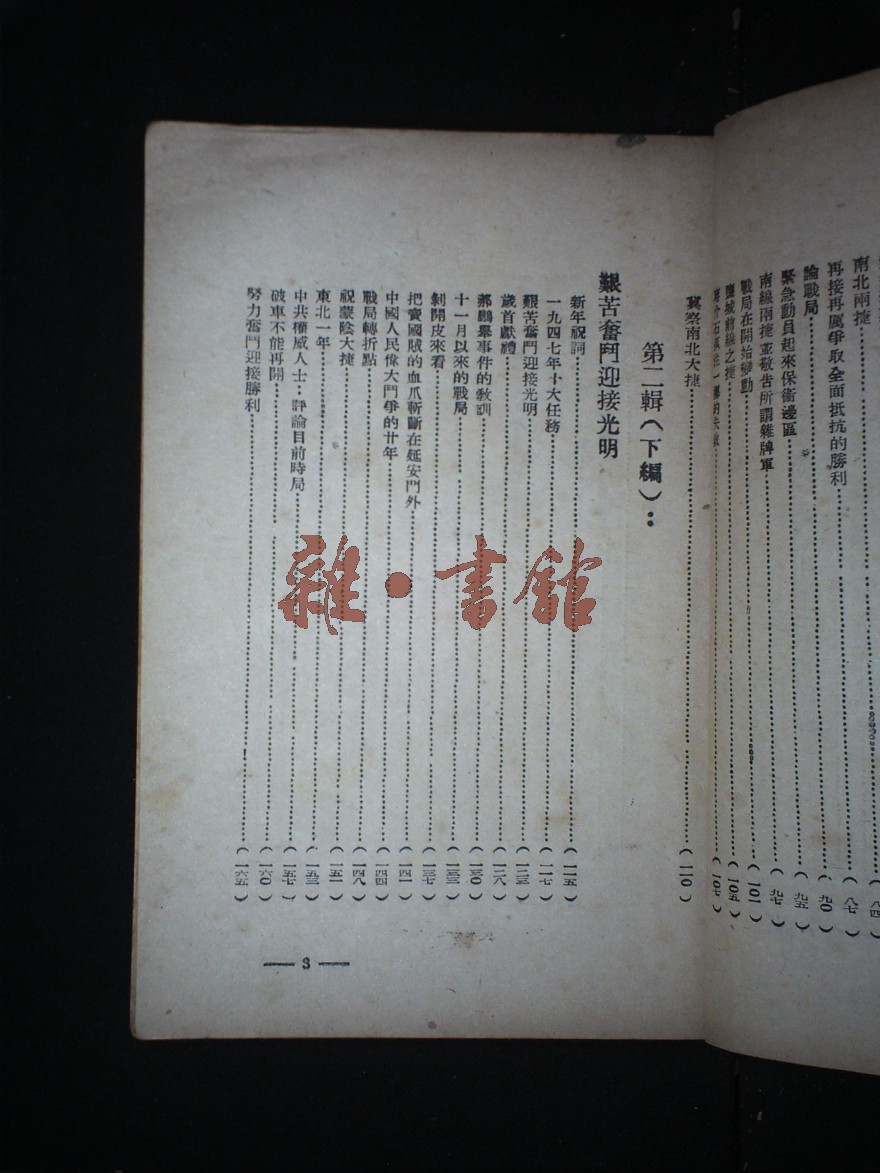 南北兩捷（八四）
再接再厲爭取全面抵抗的勝利（八七）
論戰局（九〇）
緊急動員起來保衛邊區（九五）
南線兩捷並敬告所謂雜牌軍（九七）
戰局在開始變動（一〇一）
鹽城前線之捷（一〇五）
（一〇七）
冀察南北大捷（一一〇）
第二輯（下編）：
艱苦奮鬥迎接光明
新年祝詞（一一五）
一九四七年十大任務（一一七）
艱苦奮鬥迎接光明（一二三）
歲首獻禮（一二八）
郝鵬舉事件的教訓（一三〇）
十一月以來的戰局（一三三）
剝開皮來看（一三七）
把賣國賊的血爪斬斷在延安門外（一四一）
中國人民偉大鬥爭的廿年（一四四）
戰局轉折點（一四八）
祝蒙陰大捷（一五一）
東北一年（一五三）
中共權威人士：評論目前時局（一五七）
破車不能再開（一六〇）
努力奮鬥迎接勝利（一六五）
— 3 —
雜·書館